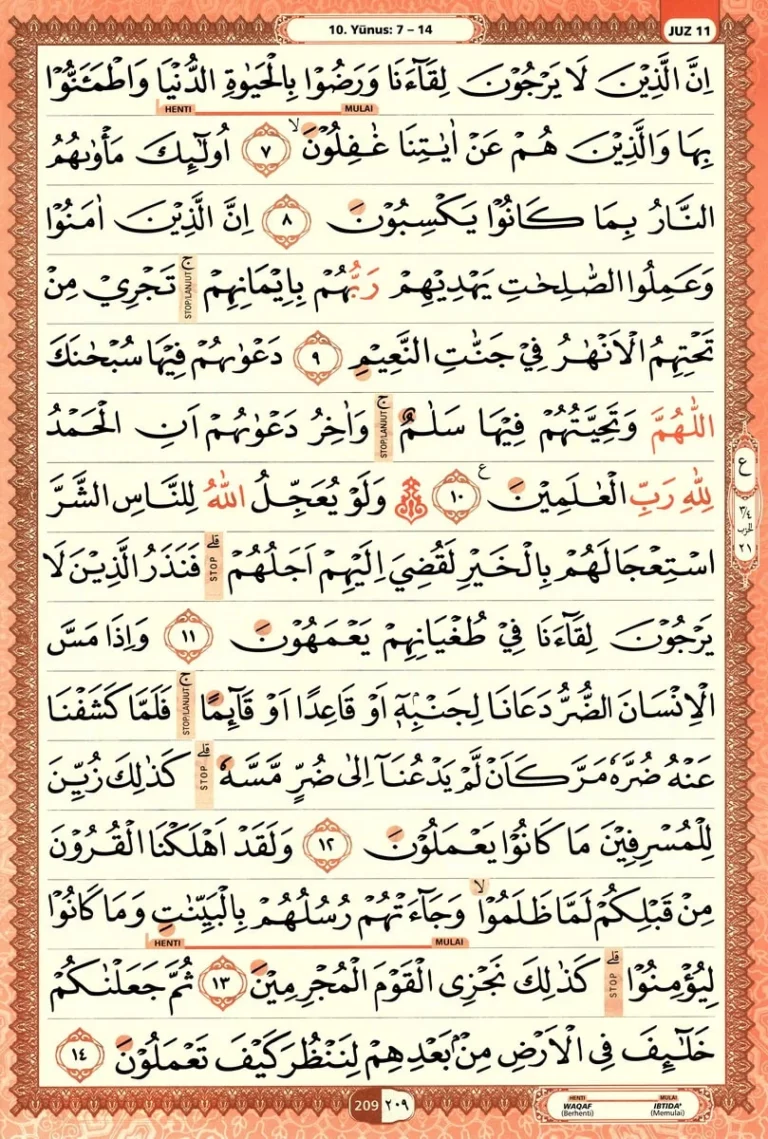 10. Yūnus: 7 – 14
JUZ 11
اِنَّ الَّذِيْنَ لَا يَرْجُوْنَ لِقَاۤءَنَا وَرَضُوْا بِالْحَيٰوةِ الدُّنْيَا وَاطْمَـَٔنُّوْا
HENTI MULAI
بِهَا وَالَّذِيْنَ هُمْ عَنْ اٰيٰتِنَا غٰفِلُوْنَۙ ٧ اُولٰۤىِٕكَ مَأْوٰىهُمُ
النَّارُ بِمَا كَانُوْا يَكْسِبُوْنَ ٨ اِنَّ الَّذِيْنَ اٰمَنُوْا
وَعَمِلُوا الصّٰلِحٰتِ يَهْدِيْهِمْ رَبُّهُمْ بِاِيْمَانِهِمْۚ STOP/LANJUT تَجْرِيْ مِنْ
تَحْتِهِمُ الْاَنْهٰرُ فِيْ جَنّٰتِ النَّعِيْمِ ٩ دَعْوٰىهُمْ فِيْهَا سُبْحٰنَكَ
اللّٰهُمَّ وَتَحِيَّتُهُمْ فِيْهَا سَلٰمٌۚ STOP/LANJUT وَاٰخِرُ دَعْوٰىهُمْ اَنِ الْحَمْدُ
لِلّٰهِ رَبِّ الْعٰلَمِيْنَ ࣖ ١٠ ۞ وَلَوْ يُعَجِّلُ اللّٰهُ لِلنَّاسِ الشَّرَّ
اسْتِعْجَالَهُمْ بِالْخَيْرِ لَقُضِيَ اِلَيْهِمْ اَجَلُهُمْۗ STOP فَنَذَرُ الَّذِيْنَ لَا
يَرْجُوْنَ لِقَاۤءَنَا فِيْ طُغْيَانِهِمْ يَعْمَهُوْنَ ١١ وَاِذَا مَسَّ
الْاِنْسَانَ الضُّرُّ دَعَانَا لِجَنْۢبِهٖٓ اَوْ قَاعِدًا اَوْ قَاۤىِٕمًاۚ STOP/LANJUT فَلَمَّا كَشَفْنَا
عَنْهُ ضُرَّهٗ مَرَّ كَاَنْ لَّمْ يَدْعُنَآ اِلٰى ضُرٍّ مَّسَّهٗۗ STOP كَذٰلِكَ زُيِّنَ
لِلْمُسْرِفِيْنَ مَا كَانُوْا يَعْمَلُوْنَ ١٢ وَلَقَدْ اَهْلَكْنَا الْقُرُوْنَ
مِنْ قَبْلِكُمْ لَمَّا ظَلَمُوْاۙ وَجَاۤءَتْهُمْ رُسُلُهُمْ بِالْبَيِّنٰتِ وَمَا كَانُوْا
HENTI MULAI
لِيُؤْمِنُوْاۗ STOP كَذٰلِكَ نَجْزِى الْقَوْمَ الْمُجْرِمِيْنَ ١٣ ثُمَّ جَعَلْنٰكُمْ
خَلٰۤىِٕفَ فِى الْاَرْضِ مِنْۢ بَعْدِهِمْ لِنَنْظُرَ كَيْفَ تَعْمَلُوْنَ ١٤
ع
٣/٤
الحزب
٢١
209 ٢٠٩
HENTI MULAI
WAQAF IBTIDA'
(Berhenti) (Memulai)